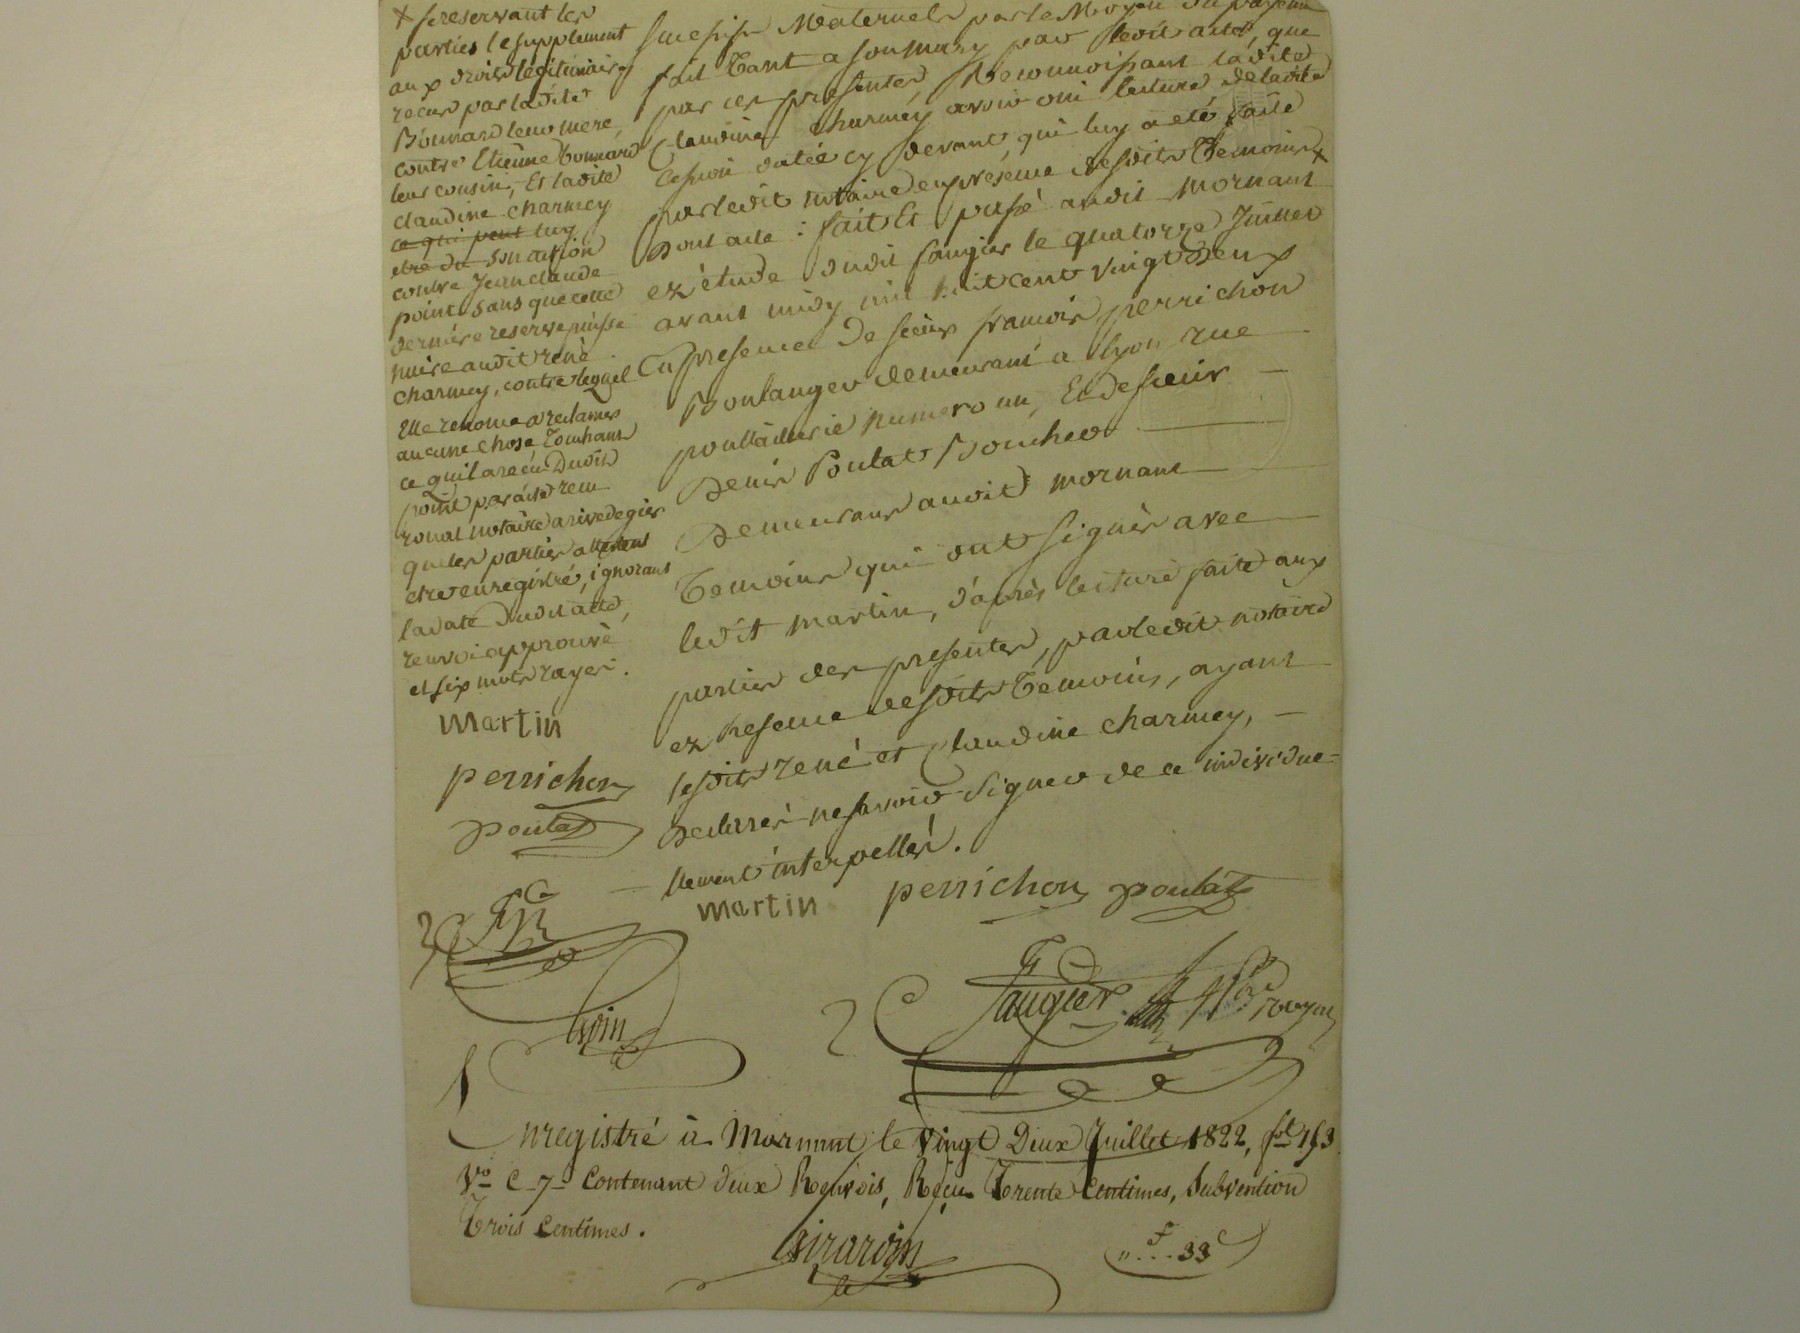 x se reservant les
parties le supplement
aux droits légitimaires
recus par ladite
Bonnard leur mere,
contre Etienne Bonnard
leur cousin, Et ladite
claudine charmey
ce qui peut luy
etre du son action
contre Jean claude
point sans que cette
derniere reserve puisse
nuire audit rené
charmey, contre lequel
Elle renonce a reclamer
aucune chose touchant
ce quil a recu dudit
point par acte recu
notaire a rivedegier
que les parties attestent
etre enregistré, ignorant
la date dudit acte,
renvoi approuvé
et six mots rayés.
martin
perrichon
poulat
maternels par le Moyen du payement
fait tant a son mary par ledit acte, que
par ces presentes, Reconnoissant ladite
Claudine charmey avoir oui lecture de ladite
cession datée cy devant, qui luy a eté faite
par ledit notaire en presence desdits temoins x
dont acte : fait Et passé audit mornant
ez étude dudit faugier le quatorze Juillet
avant midy mil huit cent vingt deux
En presence de sieur francois perrichon
Boulanger demeurant a lyon rue
poullaillerie numero un, Et de sieur
Denis Poulat Boucher
Demeurant audit mornant
Temoins qui ont signés avec
ledit martin, d'après lecture faite aux
parties des presentes, par ledit notaire
ez presence desdits temoins, ayant
lesdits rené et Claudine charmey,
declarés ne savoir signer de ce individue-
llement interpellés.
martin perrichon poulat
faugier
Enregistré à Mornant le vingt Deux Juillet 1822, fol 153
Vo C 7 Contenant deux Renvois, Reçu Trente Centimes, Subvention
Trois Centimes.
Girardin
" f .... 33 c